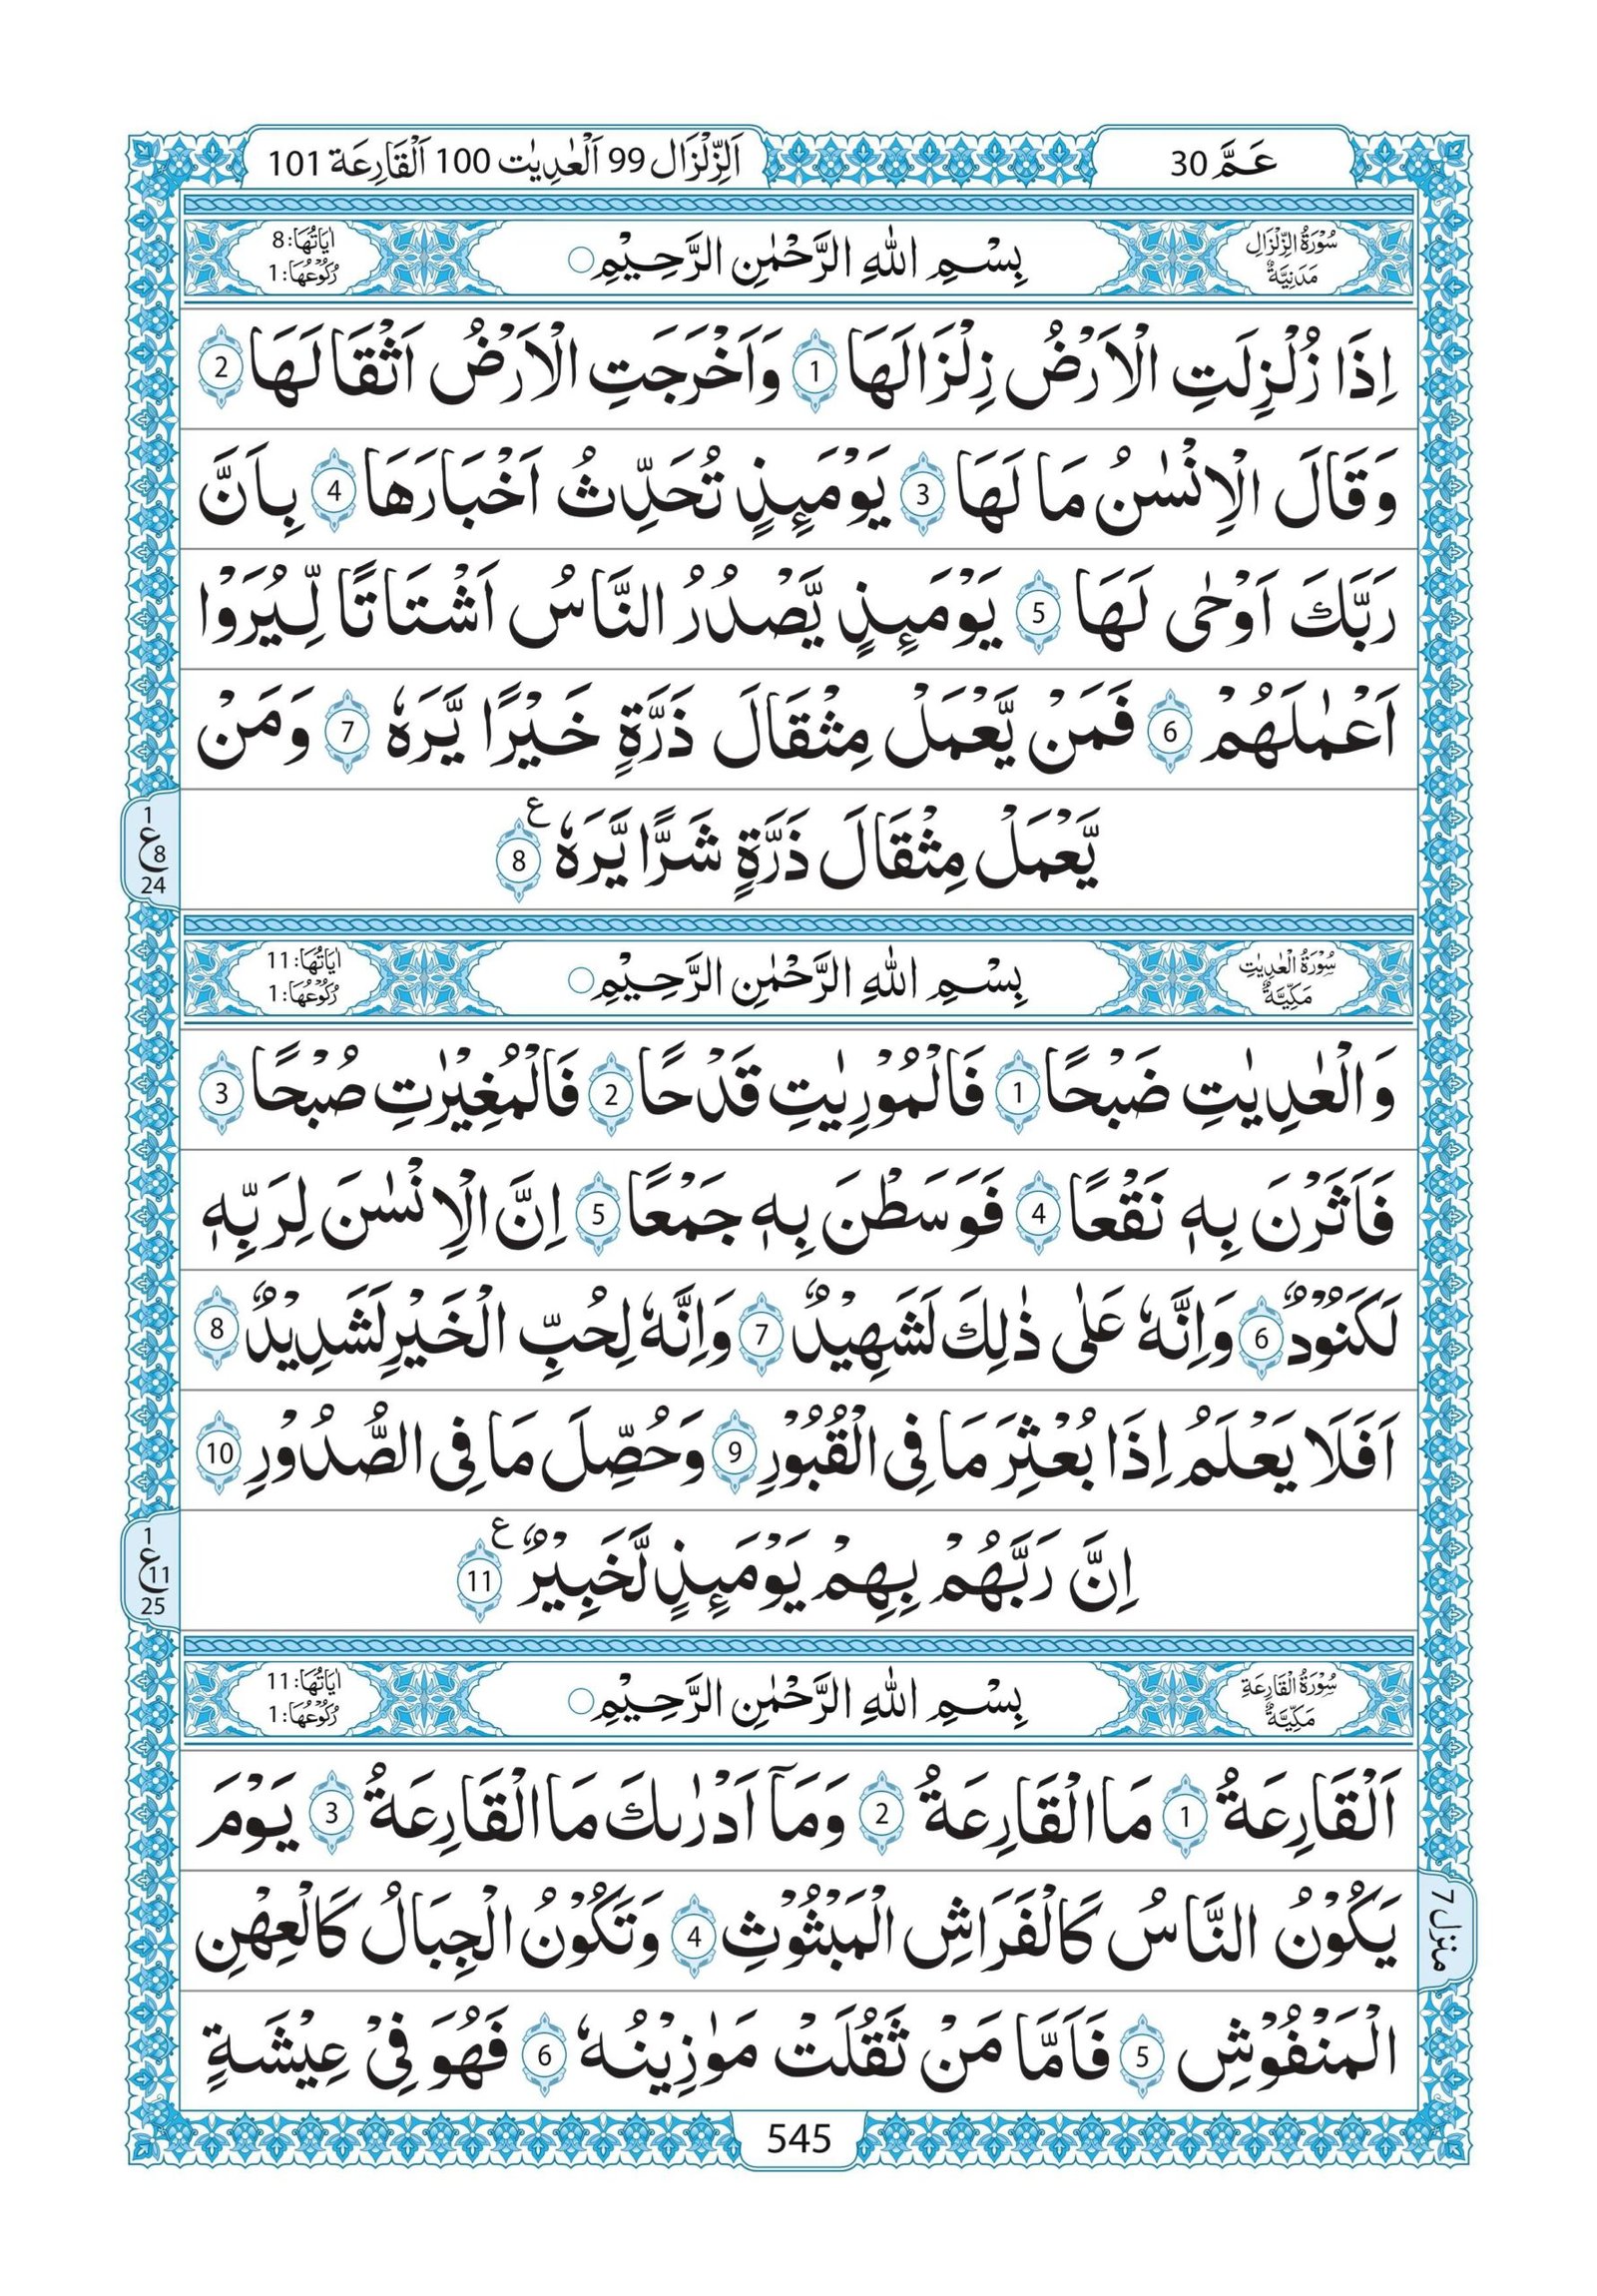 عَمَّ 30
اَلزِّلْزَال 99 اَلْعٰدِيٰت 100 اَلْقَارِعَة 101
سُوْرَةُ الزِّلْزَالِ
مَدَنِيَّةٌ
بِسْمِ اللّٰهِ الرَّحْمٰنِ الرَّحِيْمِ ○
اٰيَاتُهَا: 8
رُكُوْعُهَا: 1
اِذَا زُلْزِلَتِ الْاَرْضُ زِلْزَالَهَا 1 وَاَخْرَجَتِ الْاَرْضُ اَثْقَالَهَا 2
وَقَالَ الْاِنْسٰنُ مَا لَهَا 3 يَوْمَىِٕذٍ تُحَدِّثُ اَخْبَارَهَا 4 بِاَنَّ
رَبَّكَ اَوْحٰى لَهَا 5 يَوْمَىِٕذٍ يَّصْدُرُ النَّاسُ اَشْتَاتًا لِّيُرَوْا
اَعْمٰلَهُمْ 6 فَمَنْ يَّعْمَلْ مِثْقَالَ ذَرَّةٍ خَيْرًا يَّرَهٗ 7 وَمَنْ
يَّعْمَلْ مِثْقَالَ ذَرَّةٍ شَرًّا يَّرَهٗ ع 8
1
ع 8
24
سُوْرَةُ الْعٰدِيٰتِ
مَكِّيَّةٌ
بِسْمِ اللّٰهِ الرَّحْمٰنِ الرَّحِيْمِ ○
اٰيَاتُهَا: 11
رُكُوْعُهَا: 1
وَالْعٰدِيٰتِ ضَبْحًا 1 فَالْمُوْرِيٰتِ قَدْحًا 2 فَالْمُغِيْرٰتِ صُبْحًا 3
فَاَثَرْنَ بِهٖ نَقْعًا 4 فَوَسَطْنَ بِهٖ جَمْعًا 5 اِنَّ الْاِنْسٰنَ لِرَبِّهٖ
لَكَنُوْدٌ 6 وَاِنَّهٗ عَلٰى ذٰلِكَ لَشَهِيْدٌ 7 وَاِنَّهٗ لِحُبِّ الْخَيْرِ لَشَدِيْدٌ 8
اَفَلَا يَعْلَمُ اِذَا بُعْثِرَ مَا فِى الْقُبُوْرِ 9 وَحُصِّلَ مَا فِى الصُّدُوْرِ 10
اِنَّ رَبَّهُمْ بِهِمْ يَوْمَىِٕذٍ لَّخَبِيْرٌ ع 11
1
ع 11
25
سُوْرَةُ الْقَارِعَةِ
مَكِّيَّةٌ
بِسْمِ اللّٰهِ الرَّحْمٰنِ الرَّحِيْمِ ○
اٰيَاتُهَا: 11
رُكُوْعُهَا: 1
اَلْقَارِعَةُ 1 مَا الْقَارِعَةُ 2 وَمَآ اَدْرٰىكَ مَا الْقَارِعَةُ 3 يَوْمَ
يَكُوْنُ النَّاسُ كَالْفَرَاشِ الْمَبْثُوْثِ 4 وَتَكُوْنُ الْجِبَالُ كَالْعِهْنِ
الْمَنْفُوْشِ 5 فَاَمَّا مَنْ ثَقُلَتْ مَوٰزِيْنُهٗ 6 فَهُوَ فِىْ عِيْشَةٍ
منزل 7
545